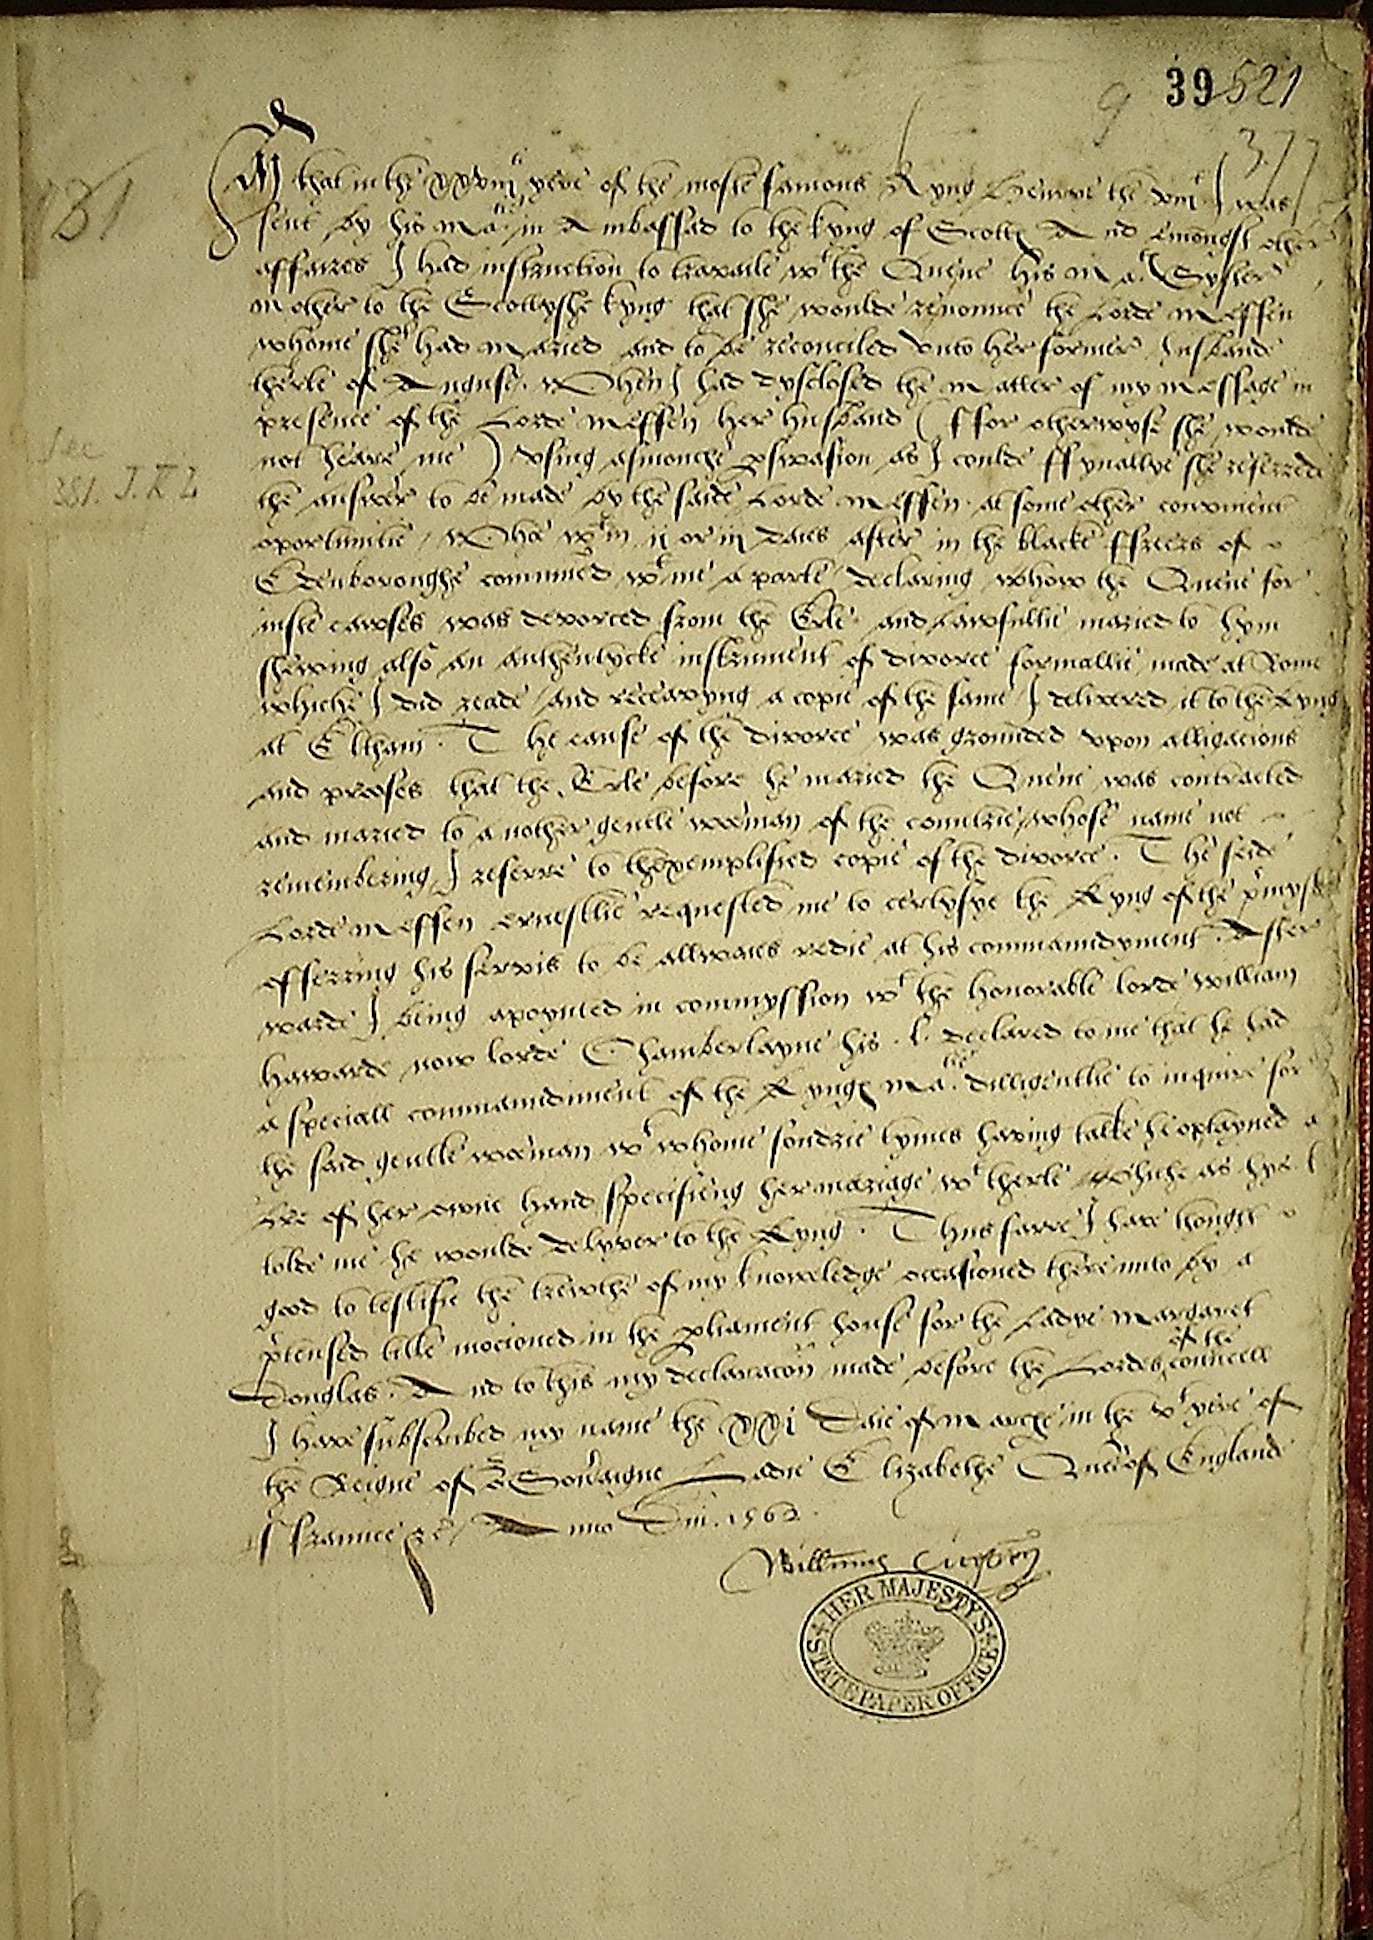 39 521
377
131
that in the xxviijti yere of the moste famous Kyng Henrye the viijt I was
sent by his Matie in Ambassad to the kyng of Scottes And emongst other
affaires I had instruction to travaile wt the Quene his Mats Syster
mother to the Scottyshe kyng that she woulde renounce the Lorde Meffen
whome she had maried and to be reconciled unto her former husbande
therle of Anguse. When I had dysclosed the matter of my message in
presence of the Lorde Meffen her husband (ffor otherwyse she woulde
not heare me) using asmouche pswasion as I coulde ffynallye she referrede
the answer to be made by the saide Lorde Meffen at some other convenient
oportunitie / Who wtin ij or iij daies after in the blacke ffreers of
Edenboroughe commned wt me aparte declaring whow the Quene for
juste cawses was devorced from the Erle and Lawfullie maried to hym
shewing also an authentycke instrument of divorce formallie made at Rome
whiche I did reade and receavyng a copie of the same I delivered it to the kyng
at Eltham. The cause of the divorce was grounded upon alligacions
and prooves that the Erle before he maried the Quene was contracted
and maried to a nother gentle wooman of the countrie whose name not
remembering I referre to thexemplified copie of the divorce. The seide
Lorde Meffen ernestlie requested me to certyfye the Kyng of the pmysses
offerring his servis to be allwaies redie at his commaundyment. After
warde I being apoynted in commyssion wt the honorable lorde William
Hawarde now lorde Chamberlayne his .l. declared to me that he had
a speciall commaundiment of the Kynges Maties dilligentlie to inquire for
the said gentle wooman wt whome sondrie tymes having talke he optayned a
lre of her owne hand specifieng her mariage wt therle whiche as hys l
tolde me he woulde delyver to the Kyng. Thus farre I have thought
good to testifie the trewthe of my knowledge occasioned there unto by a
ptensed title mocioned in the pliament house for the Ladye Margaret
Douglas. And to this my declaracon made before the Lordes of the councell
I have subscribed my name the xxi Daie of Marche in the vt yere of
the Reigne of or Soveraigne Ladie Elizabethe Quene of England
ffraunce &c / Anno Dni. 1562.
See
381. J. K L
HER MAJESTY'S STATE PAPER OFFICE